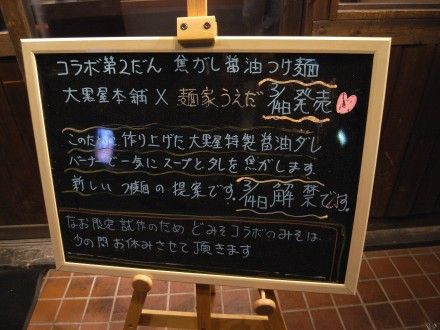 コラボ第2だん 焦がし醤油つけ麺
大黒屋本舗 × 麺家うえだ 3/14日 発売
このために作り上げた大黒屋特製醤油ダレ
バーナーで一気にスープとタレを焦がします
新しいつけ麺の提案です。3/14日 解禁です。
なお限定試作のため どみそコラボのみそは
少の間お休みさせて頂きます